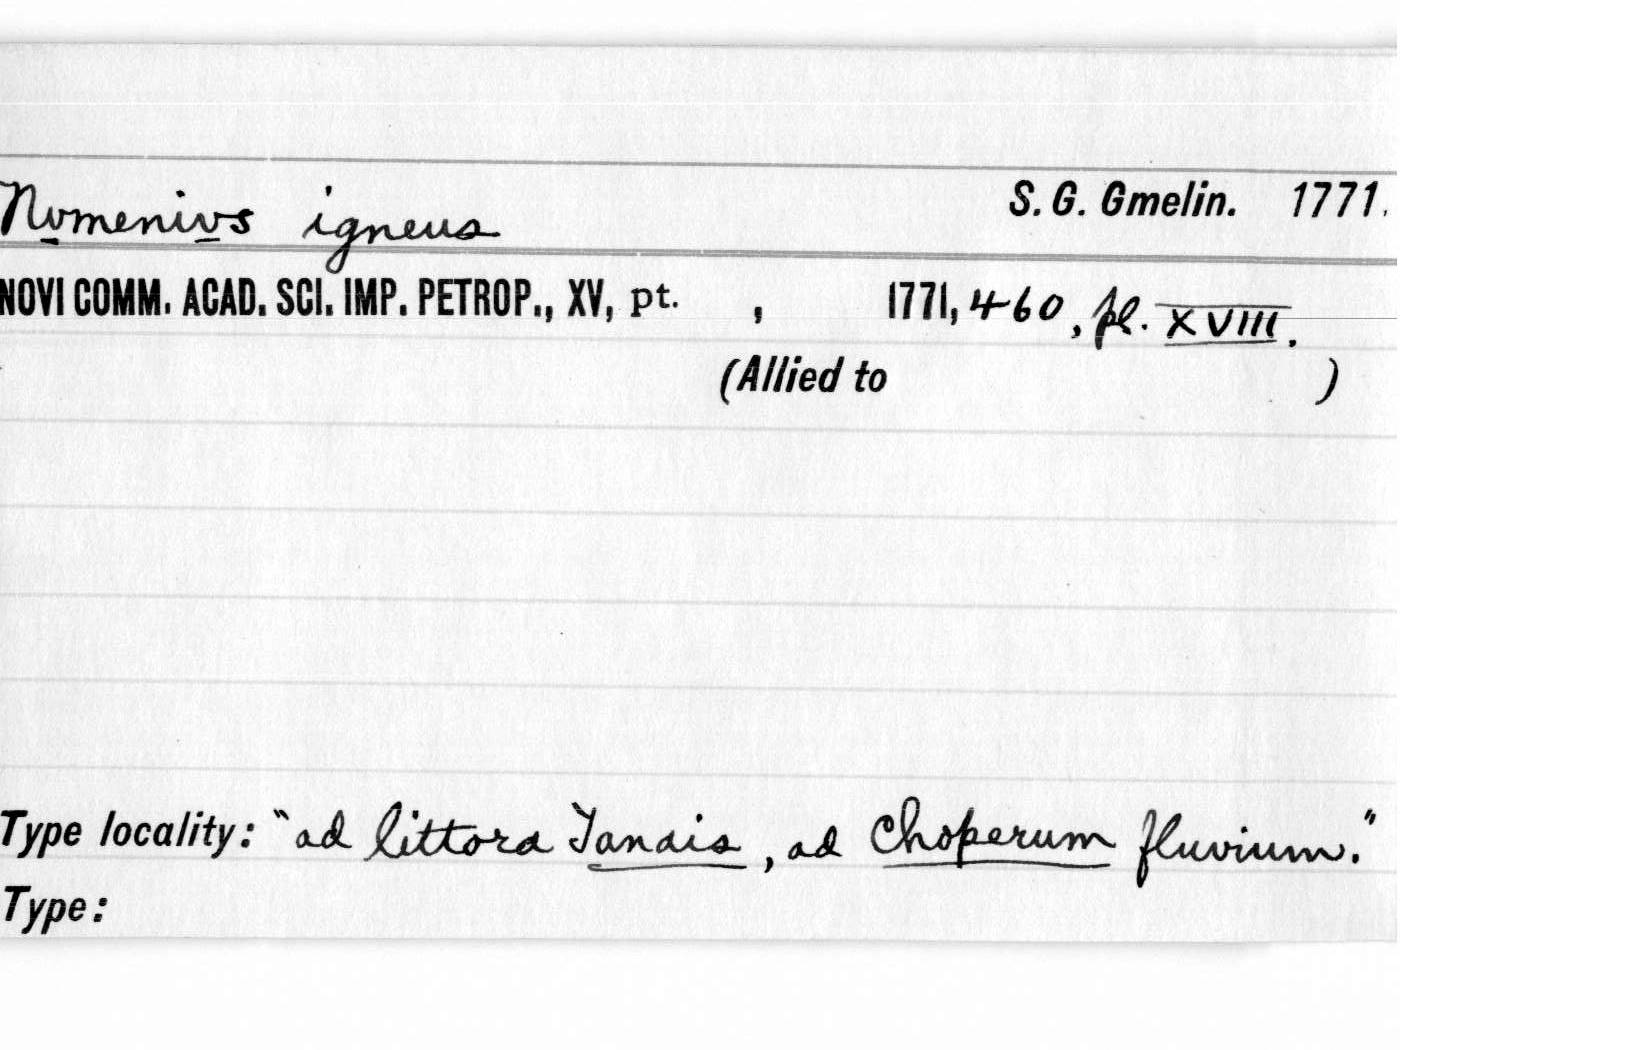 Nvmenivs igneus S. G. Gmelin. 1771.
NOVI COMM. ACAD. SCI. IMP. PETROP., XV, pt. , 1771, 460, pl. XVIII.
(Allied to )
Type locality: "ad littora Tanais, ad Choperum fluvium."
Type: